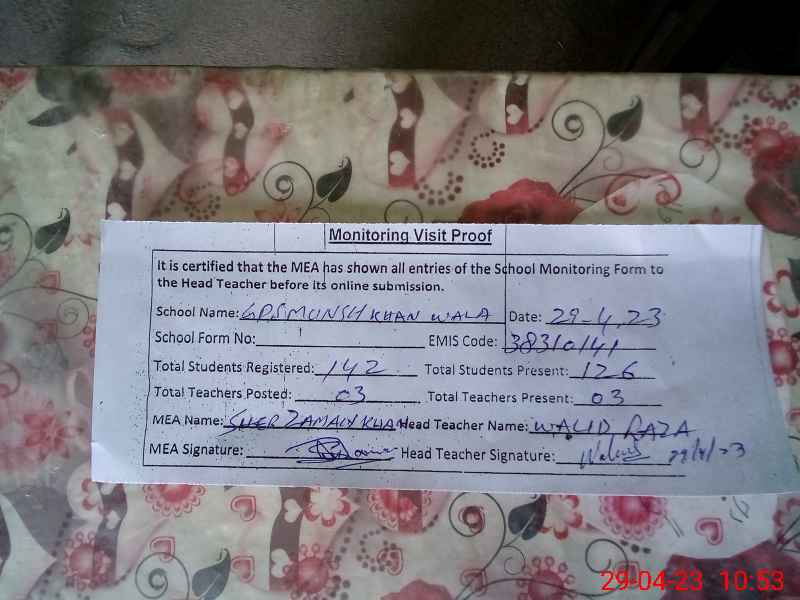 Monitoring Visit Proof
It is certified that the MEA has shown all entries of the School Monitoring Form to
the Head Teacher before its online submission.
School Name: GPS MUNSH KHAN WALA Date: 29-4,23
School Form No: EMIS Code: 38310141
Total Students Registered: 142 Total Students Present: 126
Total Teachers Posted: 03 Total Teachers Present: 03
MEA Name: SHER ZAMAN KHAN Head Teacher Name: WALID RAZA
MEA Signature: Head Teacher Signature: Walid 29/4/23
29-04-23 10:53